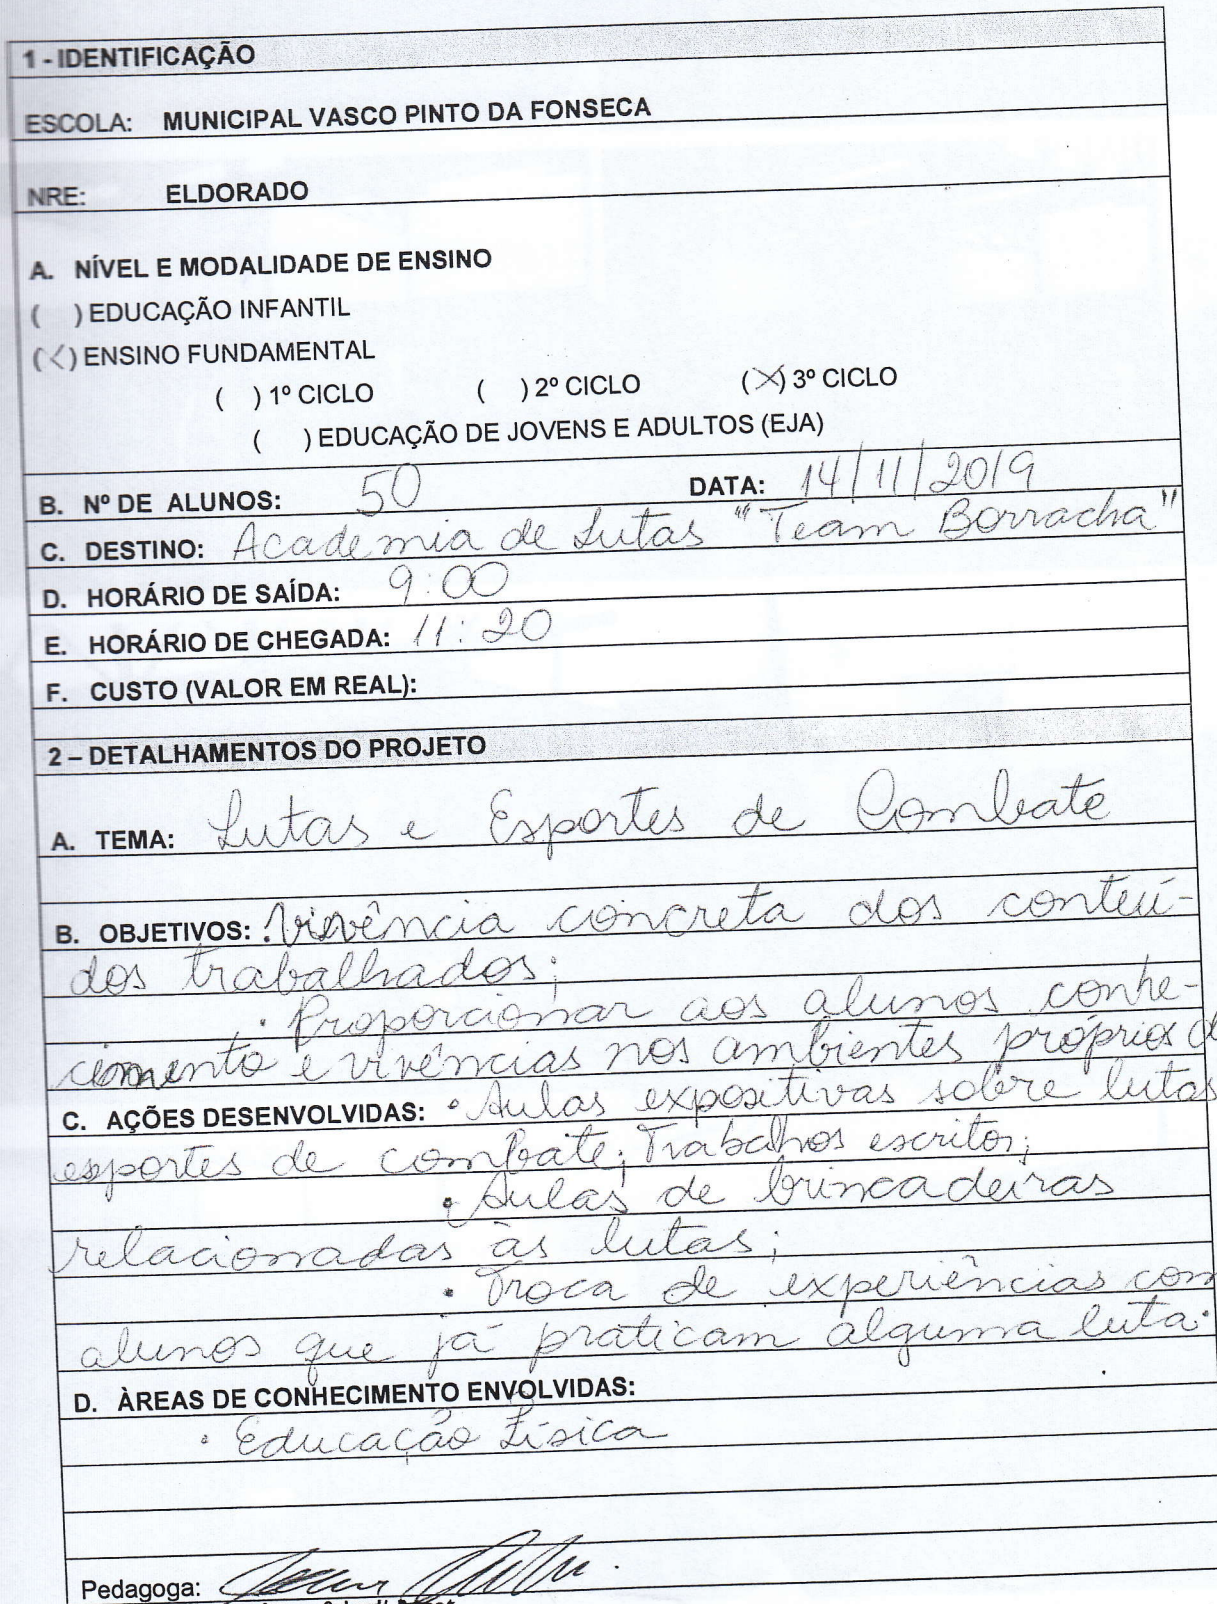 1 - IDENTIFICAÇÃO
ESCOLA: MUNICIPAL VASCO PINTO DA FONSECA
NRE: ELDORADO
A. NÍVEL E MODALIDADE DE ENSINO
( ) EDUCAÇÃO INFANTIL
(X) ENSINO FUNDAMENTAL
( ) 1º CICLO ( ) 2º CICLO (X) 3º CICLO
( ) EDUCAÇÃO DE JOVENS E ADULTOS (EJA)
B. Nº DE ALUNOS: 50 DATA: 14/11/2019
C. DESTINO: Academia de Lutas "Team Borracha"
D. HORÁRIO DE SAÍDA: 9:00
E. HORÁRIO DE CHEGADA: 11:20
F. CUSTO (VALOR EM REAL):
2 – DETALHAMENTOS DO PROJETO
A. TEMA: Lutas e Esportes de Combate
B. OBJETIVOS: . Vivência concreta dos conteú-
dos trabalhados;
. Proporcionar aos alunos conhe-
cimento e vivências nos ambientes próprios d
C. AÇÕES DESENVOLVIDAS: • Aulas expositivas sobre lutas
esportes de combate; Trabalhos escritos;
• Aulas de brincadeiras
relacionadas às lutas;
• Troca de experiências com
alunos que já praticam alguma luta.
D. ÀREAS DE CONHECIMENTO ENVOLVIDAS:
• Educação Física
Pedagoga: